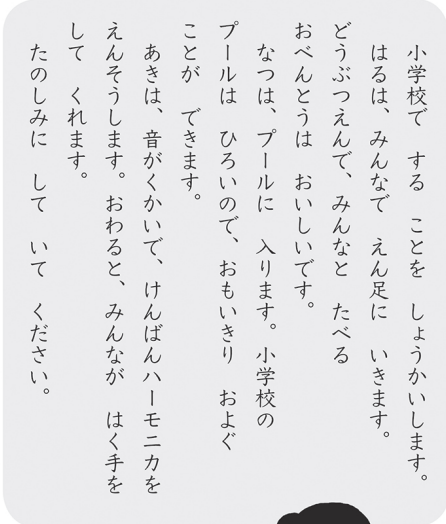 小学校で　する　ことを　しょうかいします。
はるは、みんなで　えん足に　いきます。
どうぶつえんで、みんなと　たべる
おべんとうは　おいしいです。
なつは、プールに　入ります。小学校の
プールは　ひろいので、おもいきり　およぐ
ことが　できます。
あきは、音がくかいで、けんばんハーモニカを
えんそうします。おわると、みんなが　はく手を
して　くれます。
たのしみに　して　いて　ください。